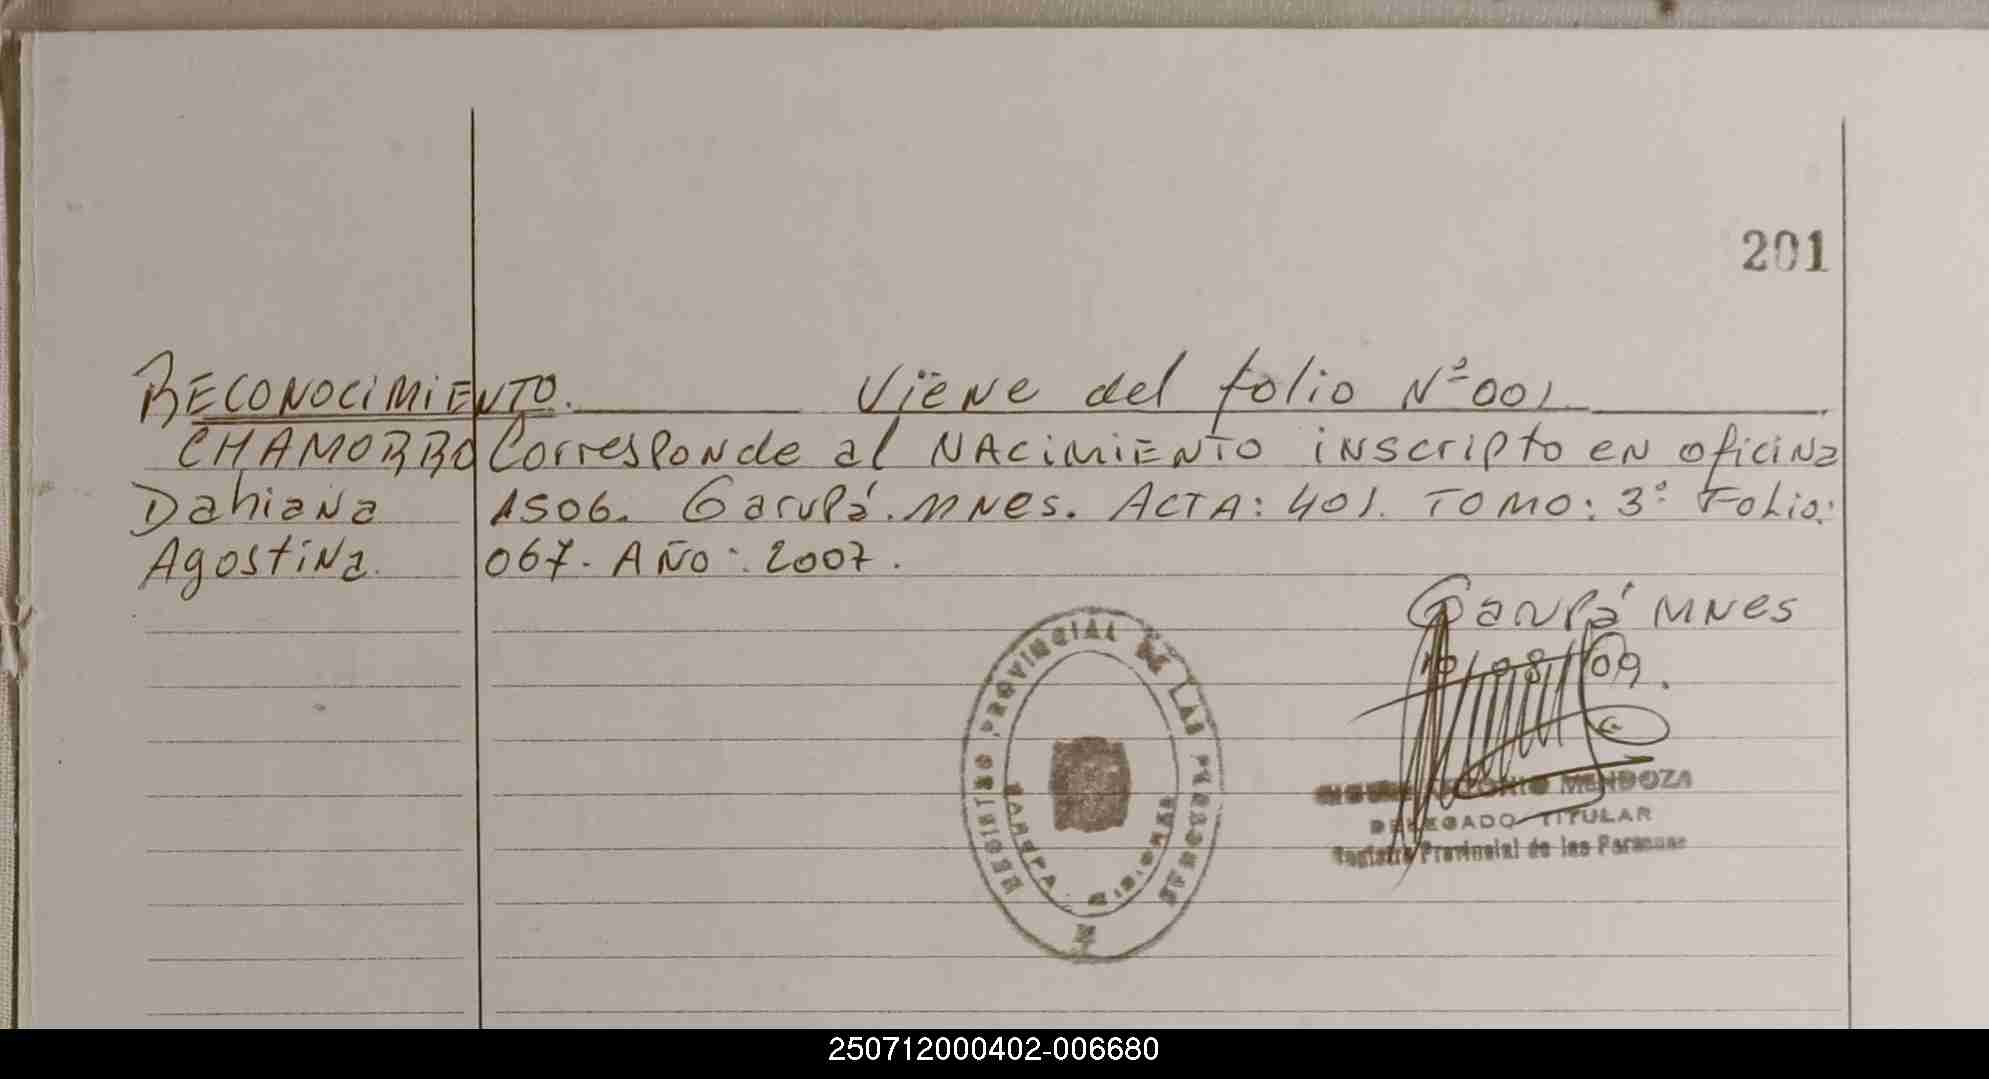 201
RECONOCIMIENTO. Viene del folio Nº 001.
CHAMORRO Corresponde al NACIMIENTO inscripto en oficina
Dahiana 1506. Garupá. MNES. ACTA: 401. TOMO: 3º Folio:
Agostina. 067. AÑO: 2007.
Garupá MNES
10/08/09.
REGISTRO PROVINCIAL DE LAS PERSONAS
MENDOZA
DELEGADO TITULAR
Registro Provincial de las Personas
250712000402-006680